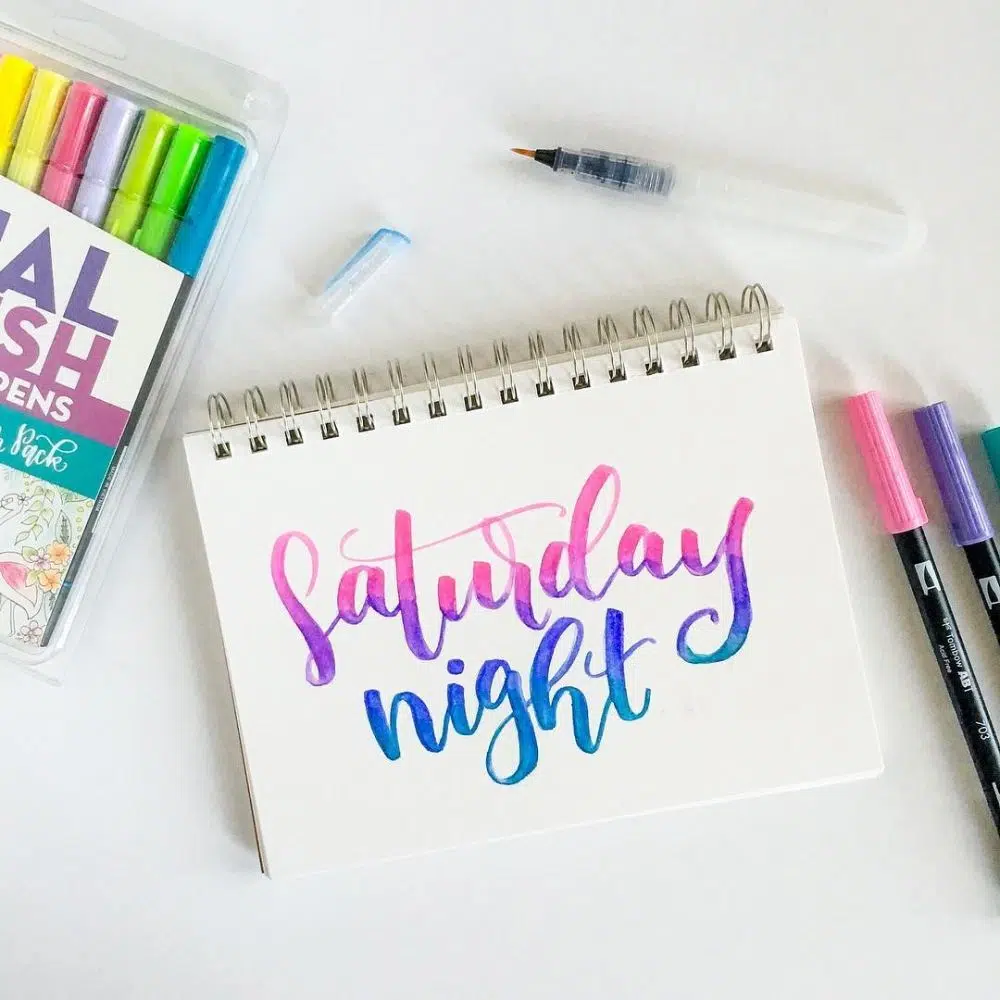 UAL
USH
PENS
Pack
Saturday
night
Tombow ABT
Acid Free
703